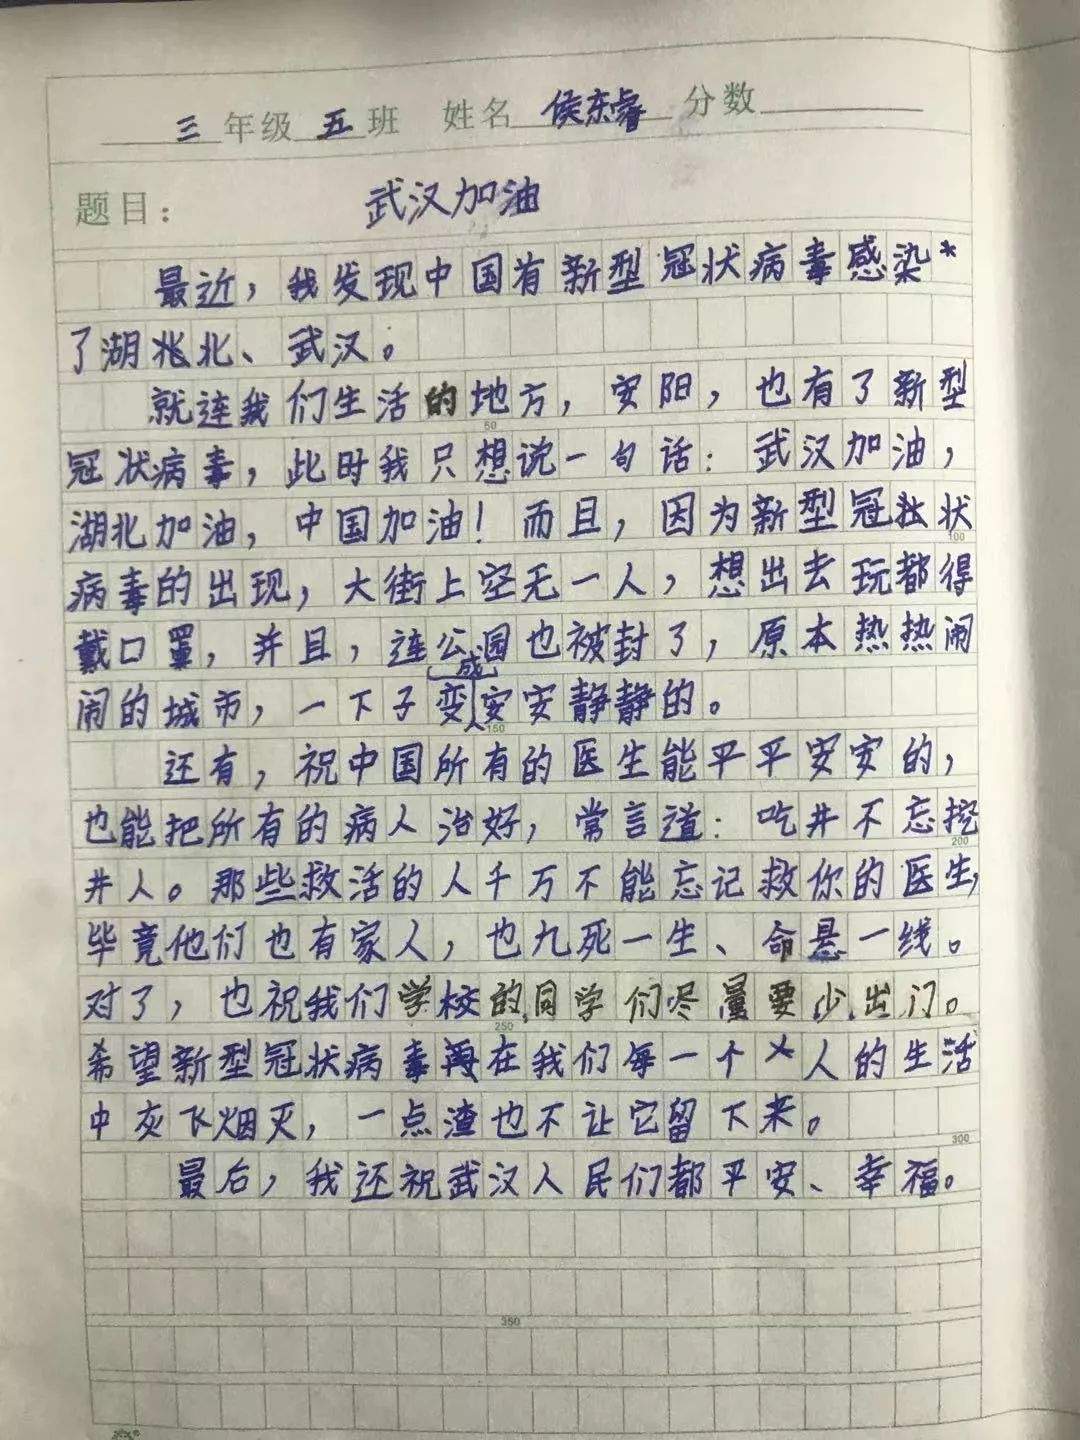 三年级五班 姓名 侯东睿 分数
题目： 武汉加油
最近，我发现中国有新型冠状病毒感染*
了湖北、武汉。
就连我们生活的地方，安阳，也有了新型
50
冠状病毒，此时我只想说一句话：武汉加油，
湖北加油，中国加油！而且，因为新型冠状
100
病毒的出现，大街上空无一人，想出去玩都得
戴口罩，并且，连公园也被封了，原本热热闹
闹的城市，一下子变成安安静静的。
150
还有，祝中国所有的医生能平平安安的，
也能把所有的病人治好，常言道：吃井不忘挖
200
井人。那些救活的人千万不能忘记救你的医生，
毕竟他们也有家人，也九死一生、命悬一线。
对了，也祝我们学校的同学们尽量要少出门。
250
希望新型冠状病毒再在我们每一个人的生活
中灰飞烟灭，一点渣也不让它留下来。
300
最后，我还祝武汉人民们都平安、幸福。
350